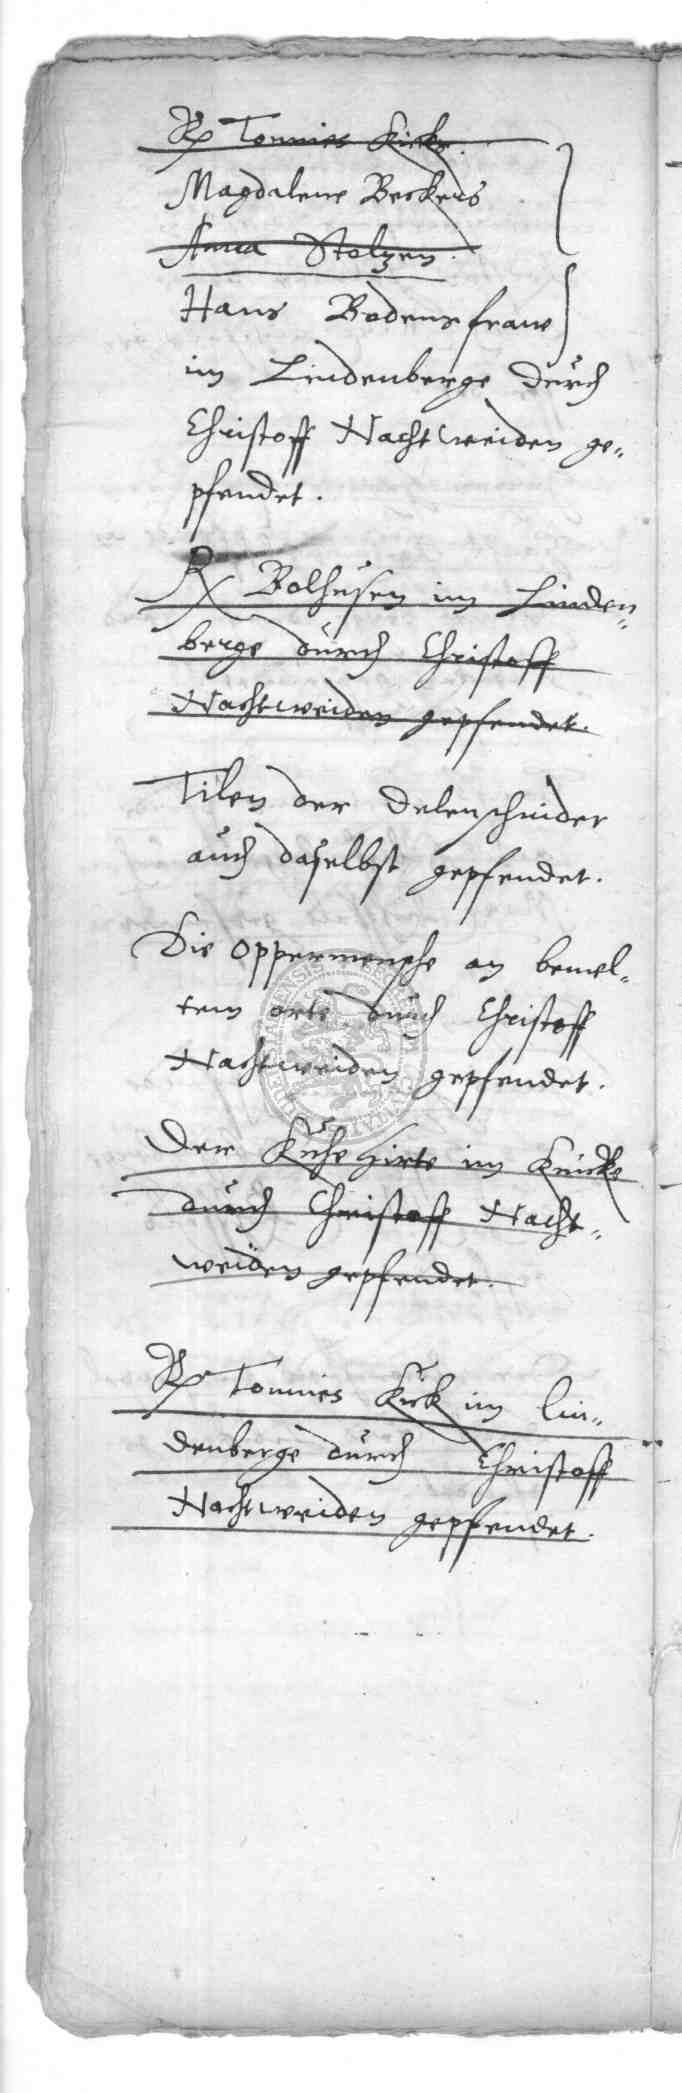 Rp Tonnies Kicks.
Magdalene Beckers
Anna Stolzen.
Hans Bodens frauw
im Lindenberge durch
Christoff Nachtweiden ge„
pfendet.
Rp Bolhusen im Linden„
berge durch Christoff
Nachtweiden gepfendet.
Tilen der delenschnider
auch daselbst gepfendet.
Die oppermensche an bemel„
tem orte durch Christoff
Nachtweiden gepfendet.
Der Kuhe Hirte im Knicke
durch Christoff Nacht„
weiden gepfendet.
Rp Tonnies Kick im lin„
denberge durch Christoff
Nachtweiden gepfendet.